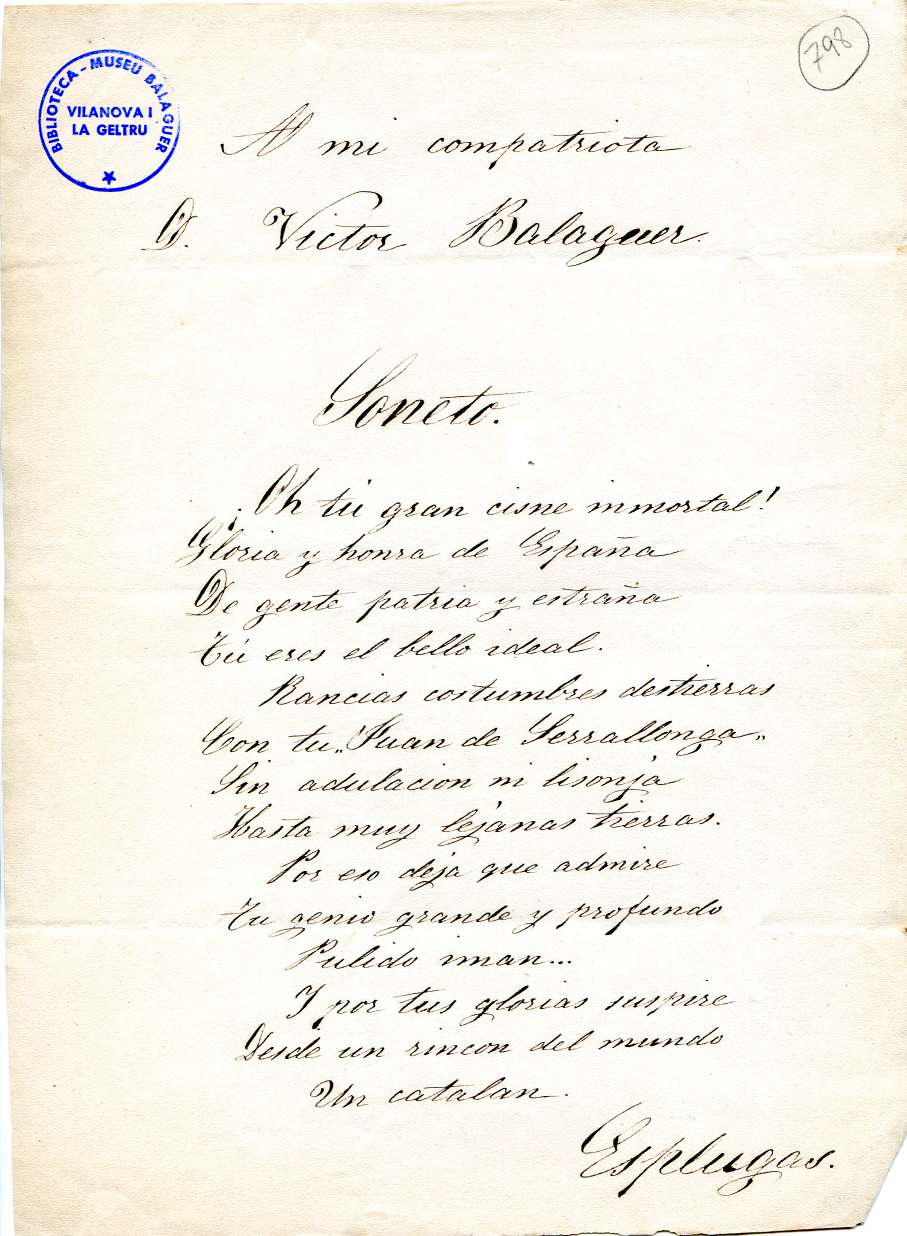 798
BIBLIOTECA - MUSEU BALAGUER
VILANOVA I
LA GELTRU
Al mi compatriota
D. Victor Balaguer.
Soneto.
¡Oh tú gran cisne inmortal!
Gloria y honra de España
De gente patria y estraña
Tú eres el bello ideal.
Rancias costumbres destierras
Con tu „Juan de Serrallonga„
Sin adulacion ni lisonja
Hasta muy lejanas tierras.
Por eso deja que admire
Tu genio grande y profundo
Pulido iman...
Y por tus glorias suspire
Desde un rincon del mundo
Un catalan.
Esplugas.